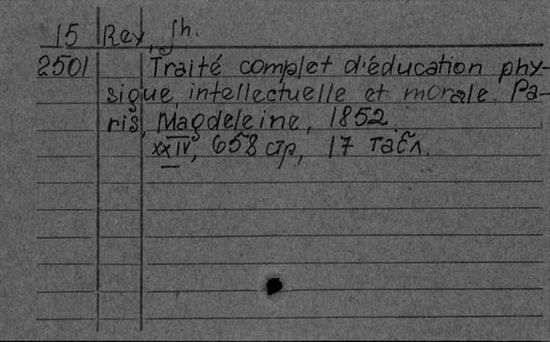 15 Rey, Jh.
2501 Traité complet d'éducation phy-
sique, intellectuelle et morale. Pa-
ris, Magdeleine, 1852.
xxIV, 658 стр, 17 табл.